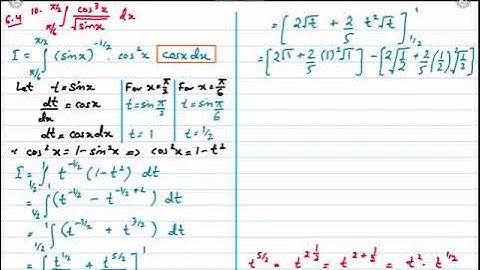 6.4 10. ∫_{π/6}^{π/2} cos³x / √sinx dx
I = ∫_{π/6}^{π/2} (sinx)^{-1/2} · cos²x cosx dx
Let t = sinx
dt/dx = cosx
dt = cosx dx
For x = π/2
t = sin π/2
t = 1
For x = π/6
t = sin π/6
t = 1/2
∵ cos²x = 1 - sin²x ⇒ cos²x = 1 - t²
I = ∫_{1/2}^{1} t^{-1/2} (1 - t²) dt
= ∫_{1/2}^{1} (t^{-1/2} - t^{-1/2+2}) dt
= ∫_{1/2}^{1} (t^{-1/2} + t^{3/2}) dt
= [ t^{1/2} + t^{5/2} ]^{1}
= [ 2√t + 2/5 t²√t ]_{1/2}^{1}
= [ 2√1 + 2/5 (1)²√1 ] - [ 2√1/2 + 2/5 (1/2)² √1/2 ]
t^{5/2} = t^{2 1/2} = t^{2 + 1/2} = t² · t^{1/2}